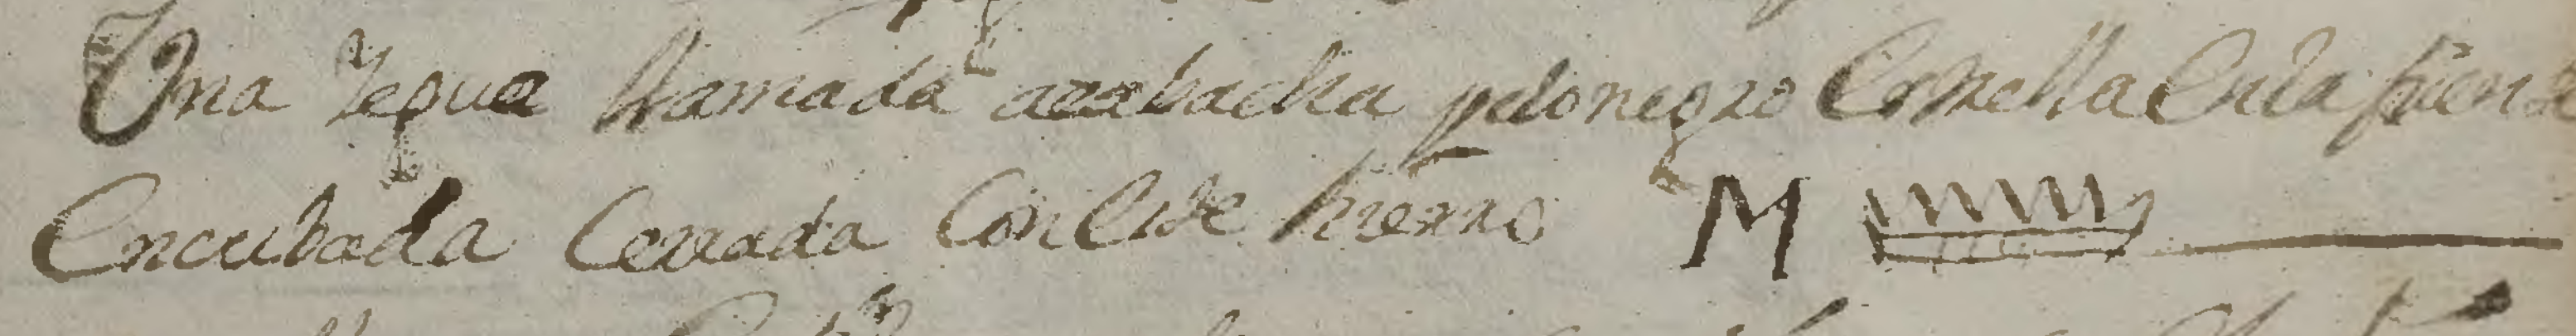 Una Yegua llamada azabacha pelo negro Estrella En la frente
Encubada Cerrada Con Este hierro M